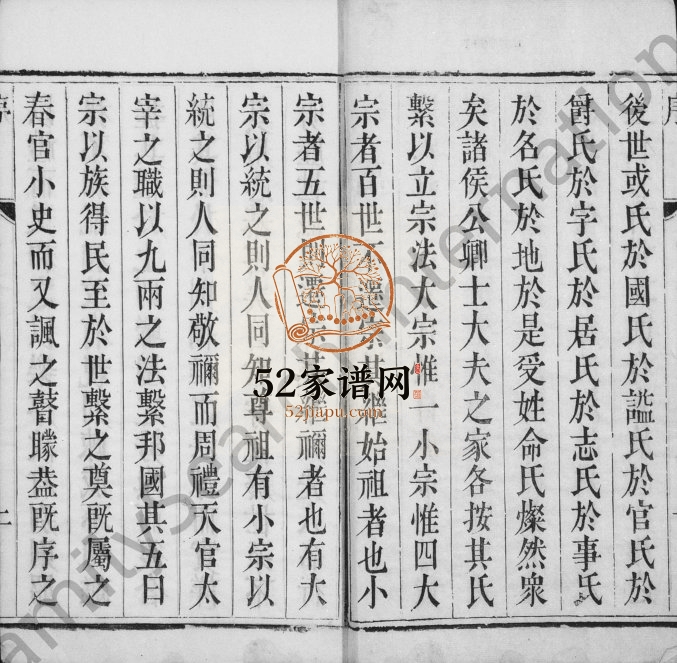 後世或氏於國氏於謚氏於官氏於
爵氏於字氏於居氏於志氏於事氏
於名氏於地於是受姓命氏燦然衆
矣諸侯公卿士大夫之家各按其氏
繫以立宗法大宗惟一小宗惟四大
宗者百世不遷宗其繼始祖者也小
宗者五世則遷宗其繼禰者也有大
宗以統之則人同知尊祖有小宗以
統之則人同知敬禰而周禮天官太
宰之職以九兩之法繫邦國其五曰
宗以族得民至於世繫之奠旣屬之
春官小史而又諷之瞽矇葢旣序之
52家谱网